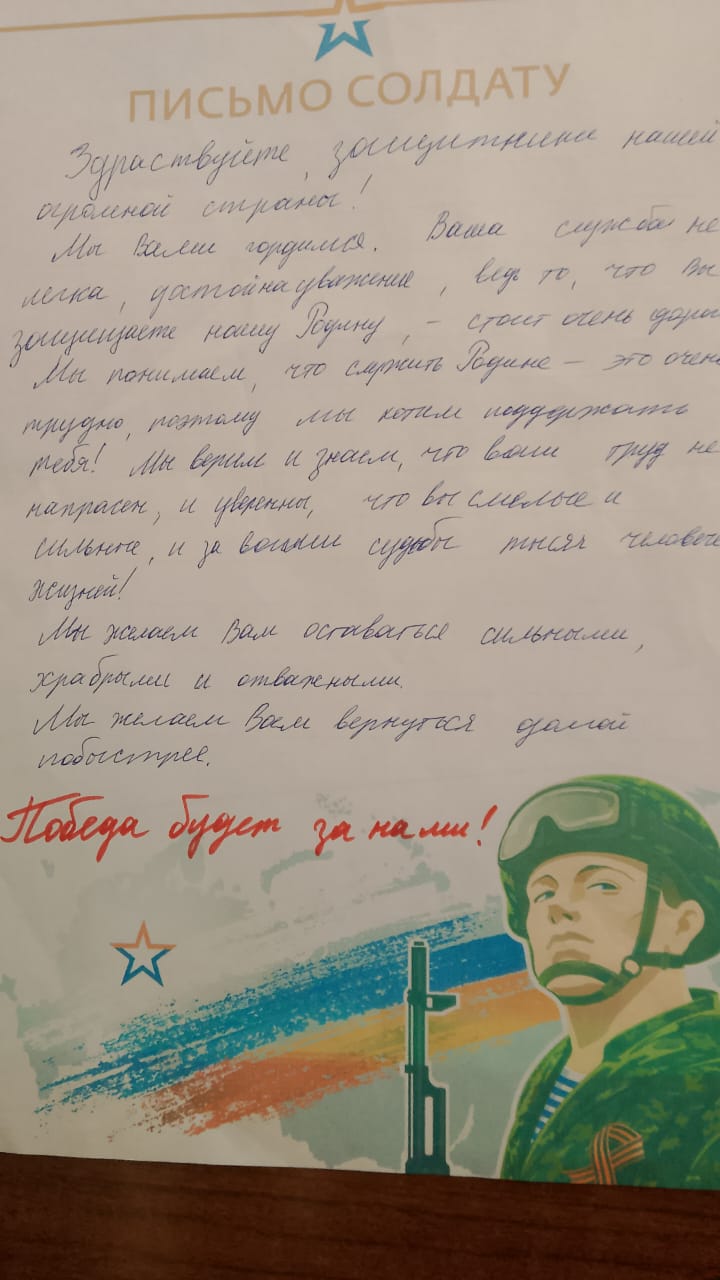 ПИСЬМО СОЛДАТУ
Здраствуйте, защитники нашей
огромной страны!
Мы Вами гордимся. Ваша служба не
легка, достойна уважение, ведь то, что Вы
защищаете нашу Родину, - стоит очень дорог
Мы понимаем, что служить Родине — это очень
трудно, поэтому мы хотим поддержать
тебя! Мы верим и знаем, что ваш труд не
напрасен, и уверенны, что вы смелые и
сильные, и за вашими судьбы тысяч человече
жизней!
Мы желаем Вам оставаться сильными,
храбрыми и отважными.
Мы желаем Вам вернуться домой
побыстрее.
Победа будет за нами!